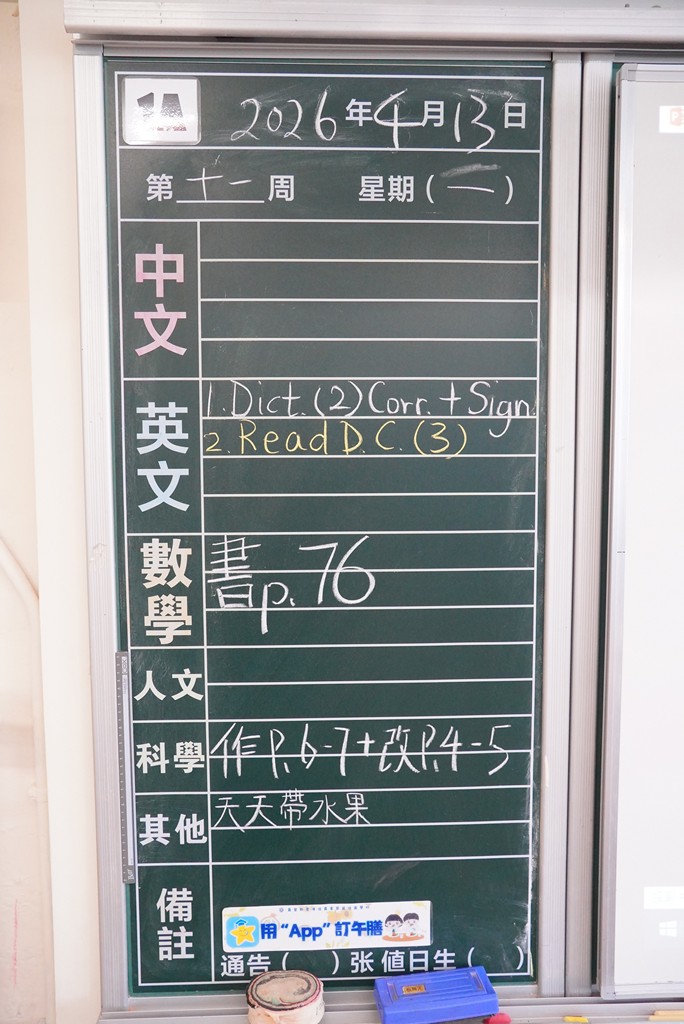 1A
2026年4月13日
第十一周 星期(一)
中文
英文
1. Dict. (2) Corr. + Sign
2. Read D.C. (3)
數學
書p. 76
人文
科學
作P.6-7+改P.4-5
其他
天天帶水果
備註
用“App”訂午膳
通告( )张 值日生( )